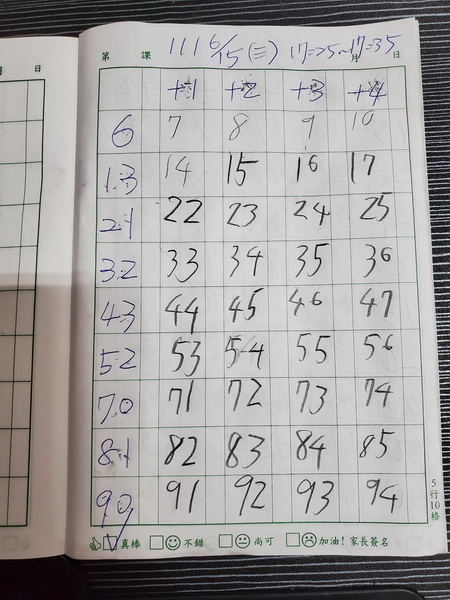 月 日
第 課 111 6/15 (三) 17=25~17=35 月 日
+1 +2 +3 +4
6 7 8 9 10
13 14 15 16 17
21 22 23 24 25
32 33 34 35 36
43 44 45 46 47
52 53 54 55 56
70 71 72 73 74
81 82 83 84 85
90 91 92 93 94
5行10格
真棒 不錯 尚可 加油! 家長簽名